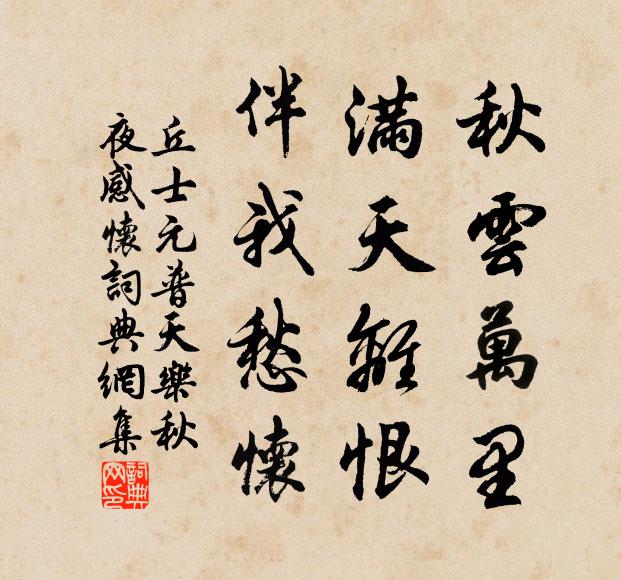 秋雲萬里
滿天離恨
伴我愁懷
丘士元普天樂秋
夜感懷詞典網集
詞典
网印